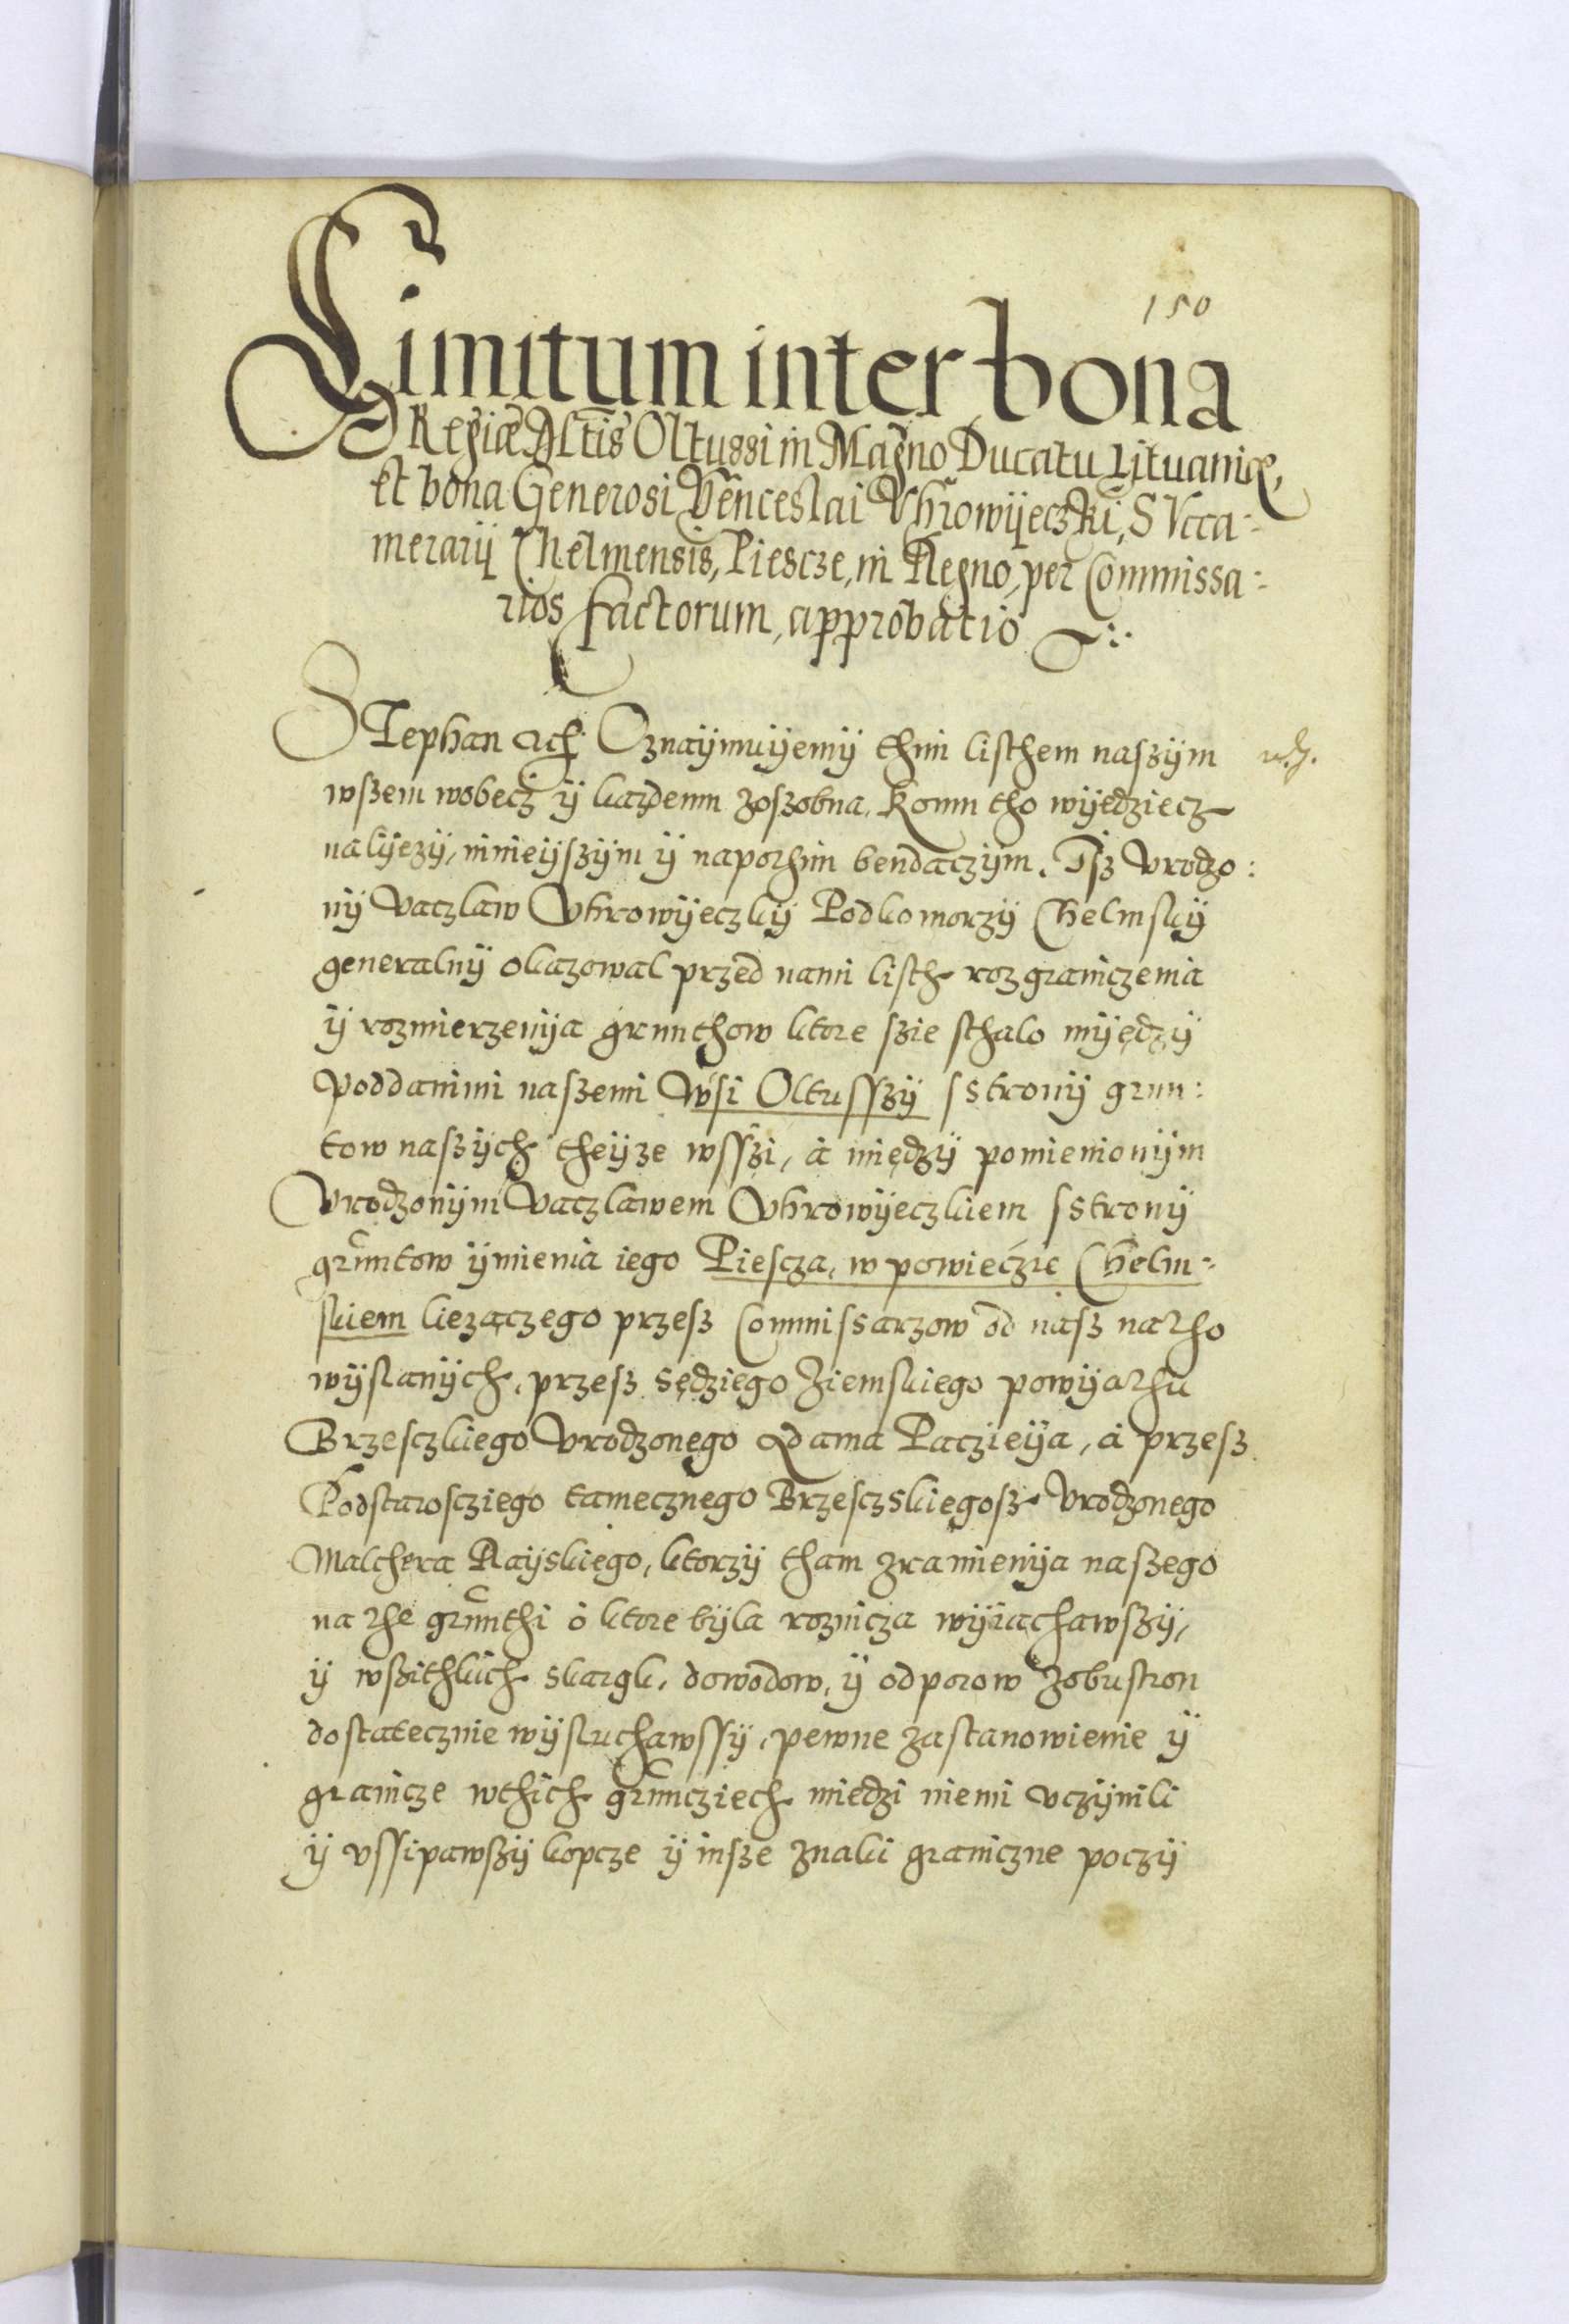 150
Limitum inter bona
Regiæ Mtis Oltussi in Magno Ducatu Lituaniæ,
et bona Generosi Venceslai Vhrowÿeczki, Succa-
merarÿ Chelmensis, Piescze, in Regno, per Commissa-
rios factorum, approbatio
STephan etc. Oznaÿmuÿemÿ thim listhem naszÿm
wszem wobecz ÿ kazdemu zoszobna, Komu tho wÿedziecz
nalÿezÿ, ninieÿszÿm ÿ napothim bendaczÿm. Isz Vrodzo:
nÿ Vaczlaw Vhrowÿeczkÿ Podkomorzÿ Chelmskÿ
generalnÿ okazowal przed nami listh rozgraniczenia
ÿ rozmierzenÿa grunthow ktore szie sthalo mÿędzÿ
poddanimi naszemi wsi Oltusszÿ sstronÿ grun:
tow naszÿch theÿze wsszi, à międzÿ pomienionÿm
Vrodzonÿm Vaczlawem Vhrowÿeczkiem sstronÿ
gruntow ÿmienia iego Piescza, w powieczie Chelm-
skiem liezączego przesz Commissarzow od nasz natho
wÿslanÿch, przesz Sędziego Ziemskiego powÿathu
Brzesczkiego Vrodzonego Adama Paczieÿa, à przesz
Podstarosczιego tamecznego Brzesczskiegosz Vrodzonego
Malchera Raÿskiego, ktorzÿ tham zramienÿa naszego
na the grunthi ò ktore bÿla roznicza wÿiachawszÿ,
ÿ wszithkich skargk, dowodow, ÿ odporow zobustron
dostatecznie wÿsluchawssÿ, pewne zastanowienie ÿ
granicze wthich grunciech miedzi niemi vczÿnili
ÿ vssipawszÿ kopcze ÿ insze znaki graniczne poczÿ